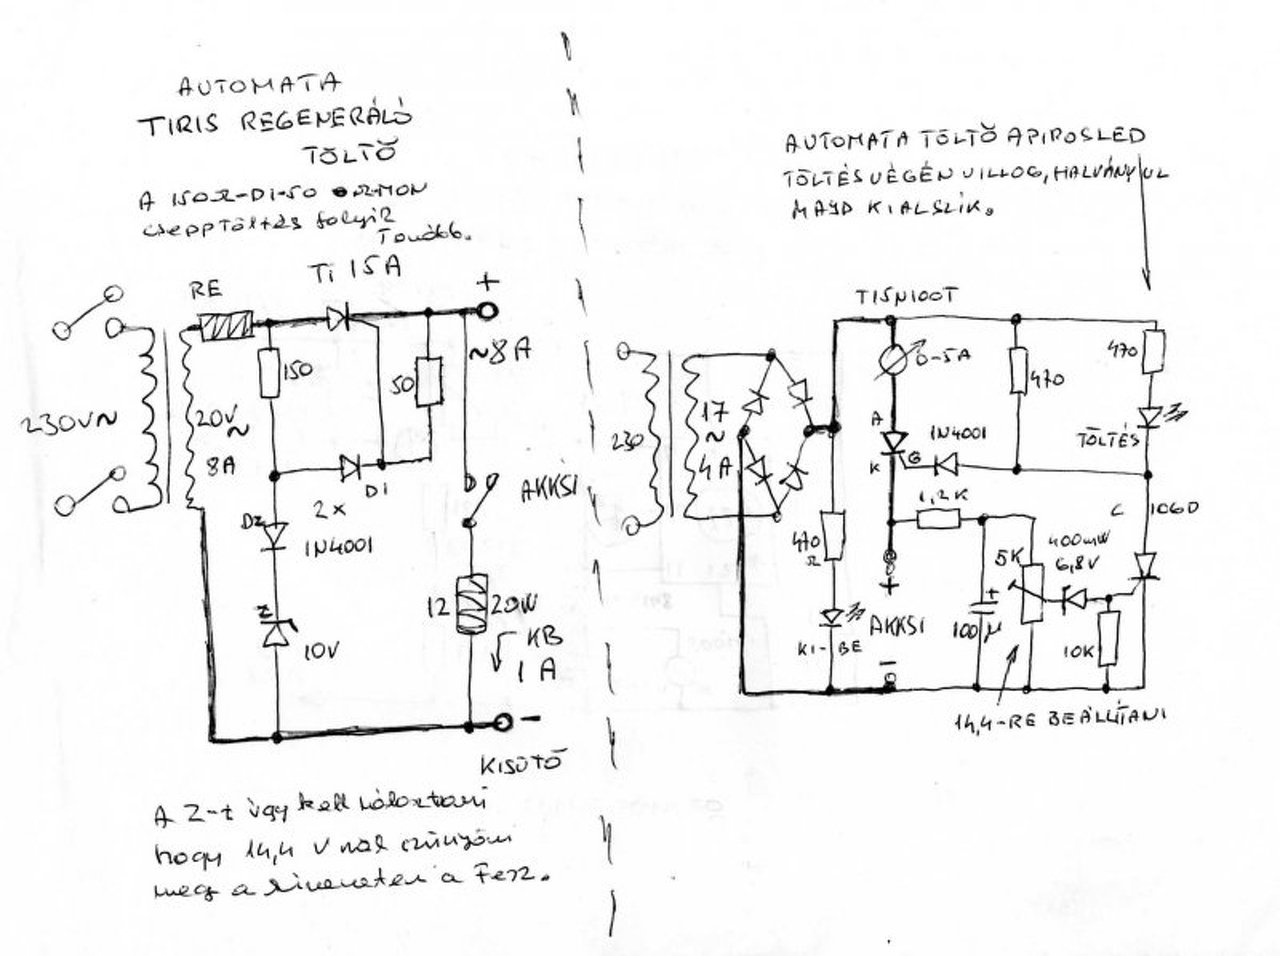 AUTOMATA
TIRIS REGENERÁLÓ
TÖLTŐ
A 150Ω-DI-50 OHMON
csepptöltés folyik
Tovább.
RE
Ti 15A
+
~8A
150
50
230V~
20V
~
8A
DI
2x
DZ
1N4001
Z
10V
AKKSI
12
20W
KB
1 A
-
KISÜTŐ
A Z-t úgy kell választani
hogy 14,4 V nál szűnjön
meg a a Fesz.
AUTOMATA TÖLTŐ A PIROS LED
TÖLTÉS VÉGÉN VILLOG, HALVÁNYUL
MAJD KIALSZIK.
T15N100T
0-5A
470
470
TÖLTÉS
230
17
~
4A
A
K
G
1N4001
1,2K
C 106D
470
Ω
KI-BE
+
AKKSI
-
100µ
+
5K
400mW
6,8V
10K
14,4-RE BEÁLLÍTANI